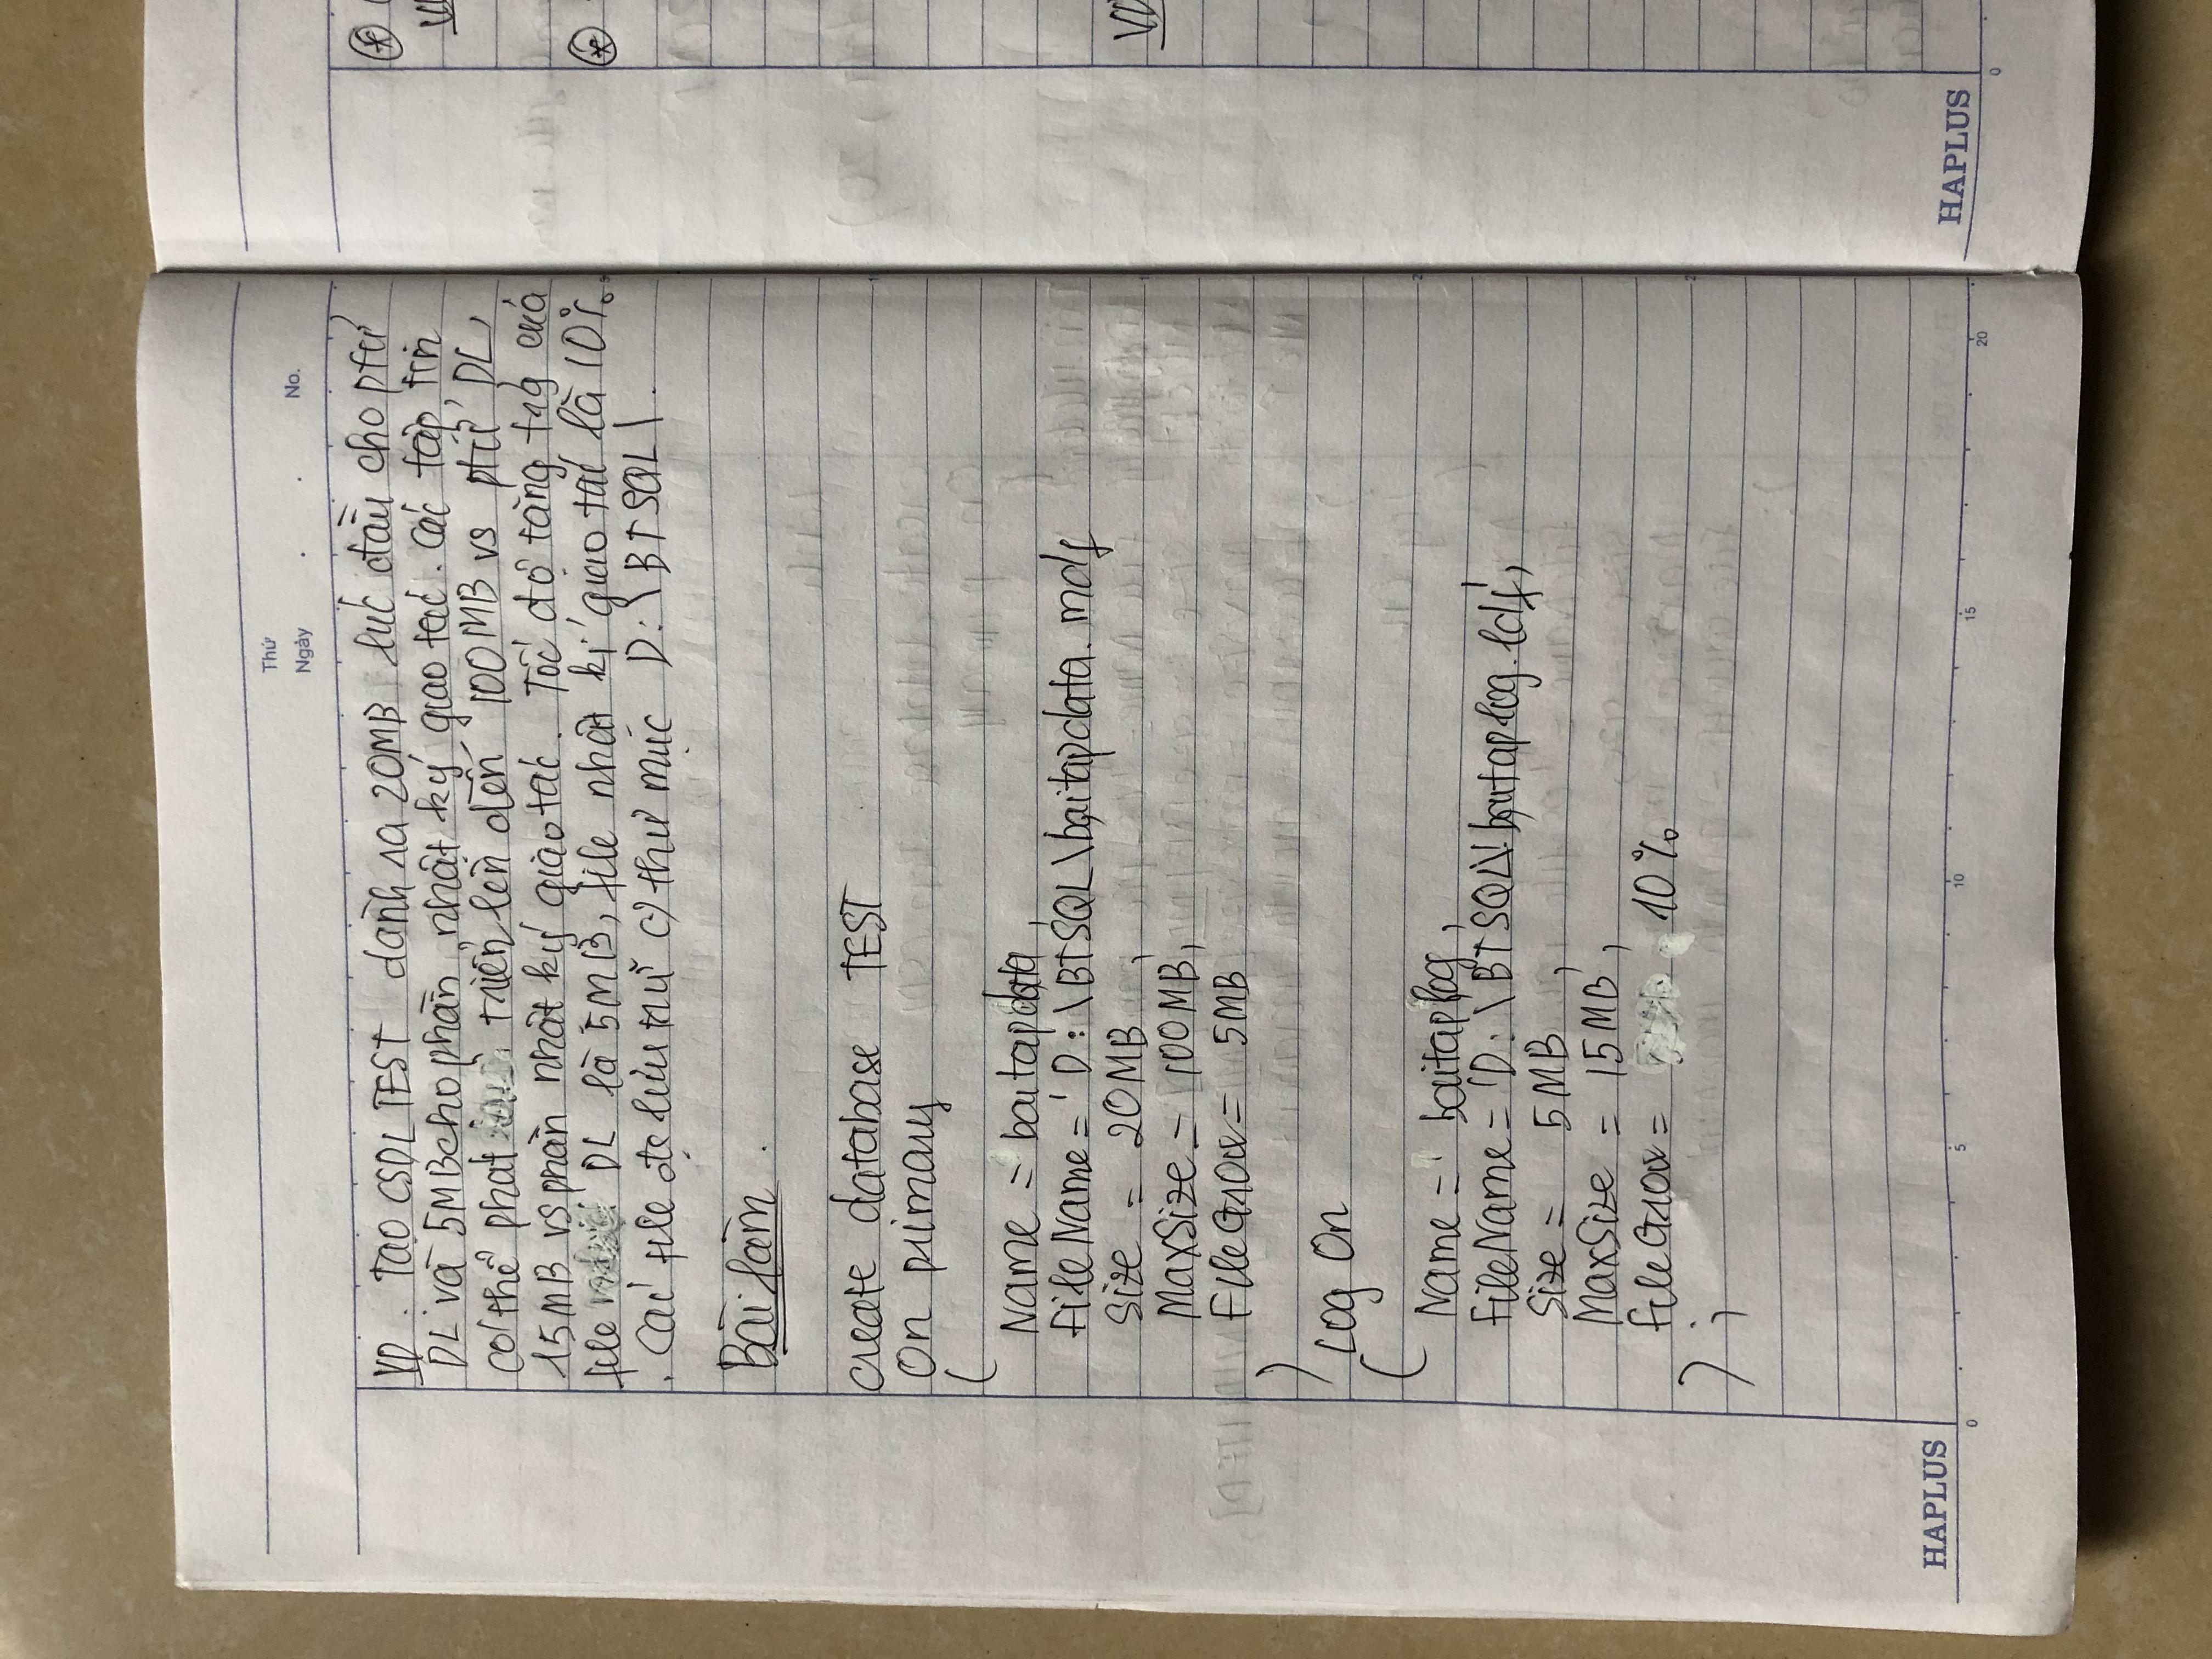 Thứ
Ngày . . No.
VD. Tạo CSDL TEST dành ra 20MB lúc đầu cho phần
DL và 5MB cho phần nhật ký giao tác. Các tập tin
có thể phát triển lên đến 100MB vs phần DL,
15MB vs phần nhật ký giao tác. Tốc độ tăng trg của
file DL là 5MB, file nhật kí giao tác là 10%.
. Các file đc lưu trữ ở thư mục D:\BTSQL\.
Bài làm .
create database TEST
On primary
(
Name = baitapdata,
FileName = 'D:\BTSQL\baitapdata.mdf
Size = 20MB ,
MaxSize = 100MB,
FileGrow = 5MB
)
Log On
(
Name = baitaplog,
FileName = 'D:\BTSQL\baitaplog.ldf',
Size = 5MB ,
MaxSize = 15MB ,
FileGrow = 10%
) ;
HAPLUS
0 5 10 15 20
VD
HAPLUS
0